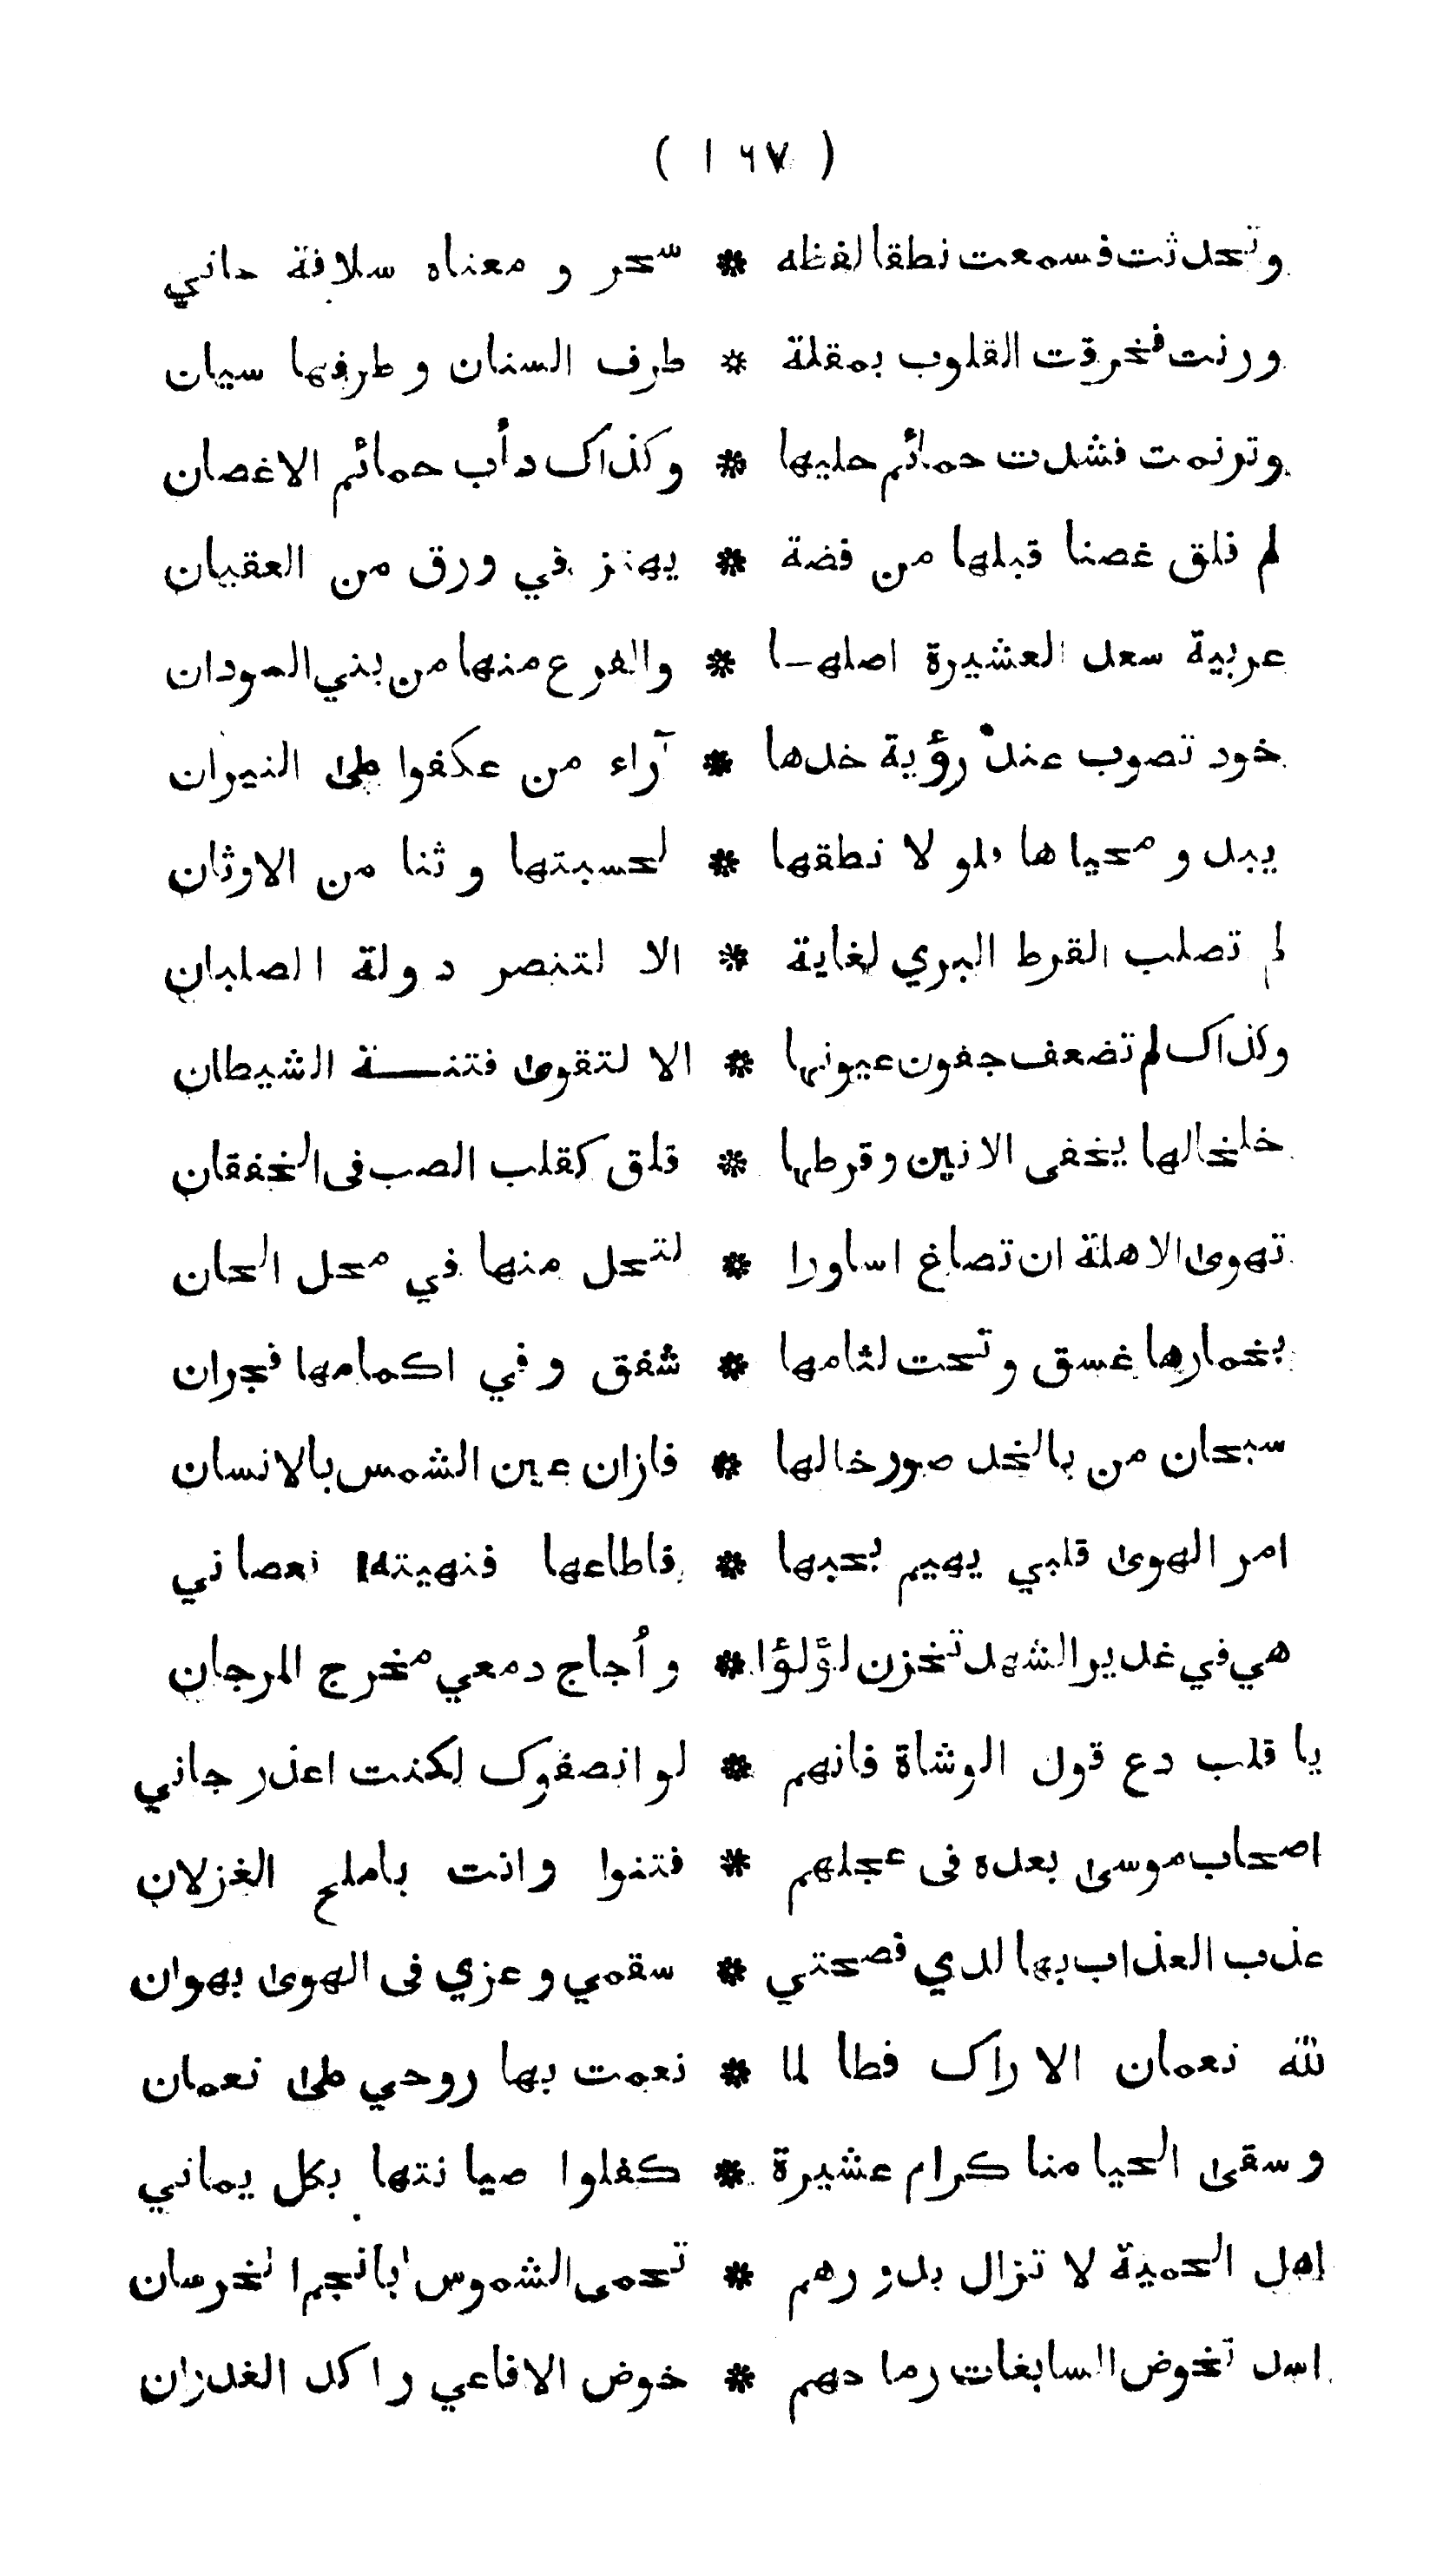 ( ١٦٧ )
وتحدثت فسمعت نطقا لفظه * سحر و معناه سلافة حاني
ورنت فخرقت القلوب بمقلة * طرف السنان و طرفها سيان
وترنمت فشدت حمائم حليها * وكذاك دأب حمائم الاغصان
لم نلق غصنا قبلها من فضة * يهتز في ورق من العقيان
عربية سعد العشيرة اصلهــا * والفرع منها من بني السودان
خود تصوب عند رؤية خدها * آراء من عكفوا على النيران
يبدو محياها فلو لا نطقها * لحسبتها وثنا من الاوثان
لم تصلب القرط البري لغاية * الا لتنصر دولة الصلبان
وكذاك لم تضعف جفون عيونها * الا لتقوى فتنـــة الشيطان
خلخالها يخفى الانين وقرطها * قلق كقلب الصب فى الخفقان
تهوى الاهلة ان تصاغ اساورا * لتحل منها في محل الحان
بخمارها غسق وتحت لثامها * شفق وفي اكمامها فجران
سبحان من بالخد صور خالها * فازان عين الشمس بالانسان
امر الهوى قلبي يهيم بحبها * فاطاعها فنهيته فعصاني
هي في غدير الشهد تخزن لؤلؤا * وأجاج دمعي مخرج المرجان
يا قلب دع قول الوشاة فانهم * لو انصفوك لكنت اعذر جاني
اصحاب موسى بعده فى عجلهم * فتنوا وانت باملح الغزلان
عذب العذاب بها لدي فصحتي * سقمي وعزي فى الهوى بهوان
لله نعمان الاراك فطا لما * نعمت بها روحي على نعمان
وسقى الحيا منا كرام عشيرة * كفلوا صيانتها بكل يماني
اهل الحمية لا تزال بدورهم * تحمى الشموس بانجم الخرصان
اسد تخوض السابغات رماحهم * خوض الافاعي راكد الغدران